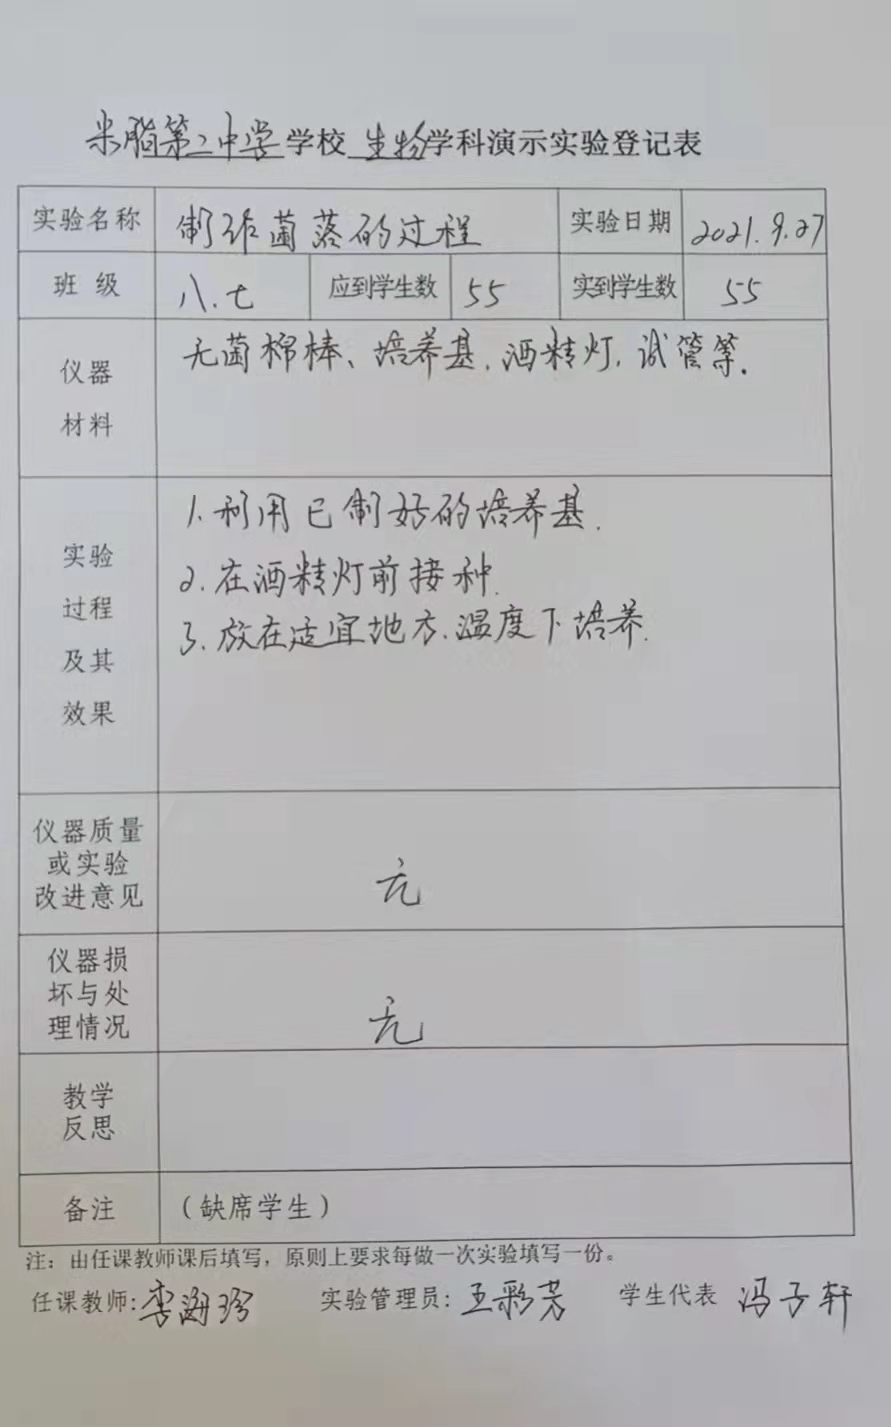 米脂第二中学学校 生物学科演示实验登记表
实验名称 制作菌落的过程 实验日期 2021.9.27
班 级 八.七 应到学生数 55 实到学生数 55
仪器
材料
无菌棉棒、培养基.酒精灯.试管等.
实验
过程
及其
效果
1.利用已制好的培养基.
2.在酒精灯前接种.
3.放在适宜地方.温度下培养.
仪器质量
或实验
改进意见
无
仪器损
坏与处
理情况
无
教学
反思
备注 (缺席学生)
注：由任课教师课后填写，原则上要求每做一次实验填写一份。
任课教师:李海玲 实验管理员:王彩芳 学生代表 冯子轩